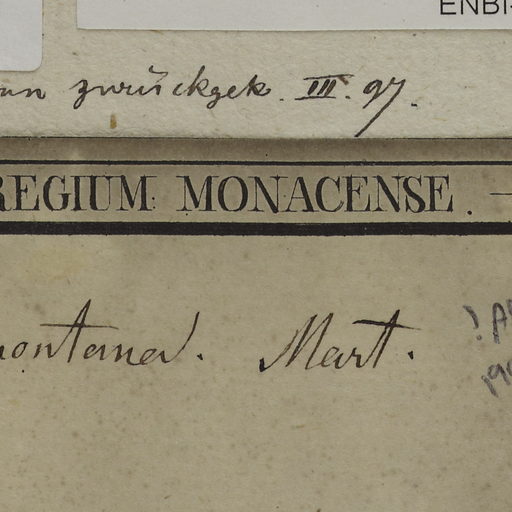 ENBI
zurückgek. III. 97.
REGIUM MONACENSE.
montana. Mart.